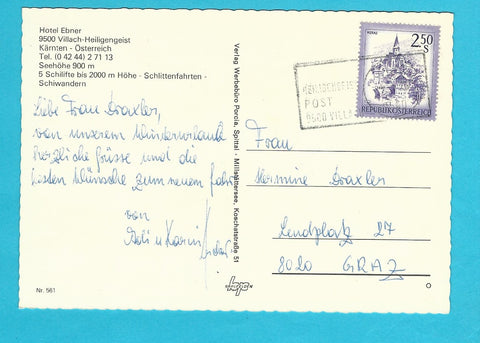 Hotel Ebner
9500 Villach-Heiligengeist
Kärnten - Österreich
Tel. (0 42 44) 2 71 13
Seehöhe 900 m
5 Schilifte bis 2000 m Höhe - Schlittenfahrten -
Schiwandern
Liebe Frau Draxler,
von unserem Winterurlaub
herzliche Grüsse und die
besten Wünsche zum neuen Jahr
von
Verlag Werbebüro Porcia, Spittal - Millstättersee, Koschatstraße 51
MURAU
2,50
S
REPUBLIK ÖSTERREICH
POST
9500 VILL
Frau
Hermine Draxler
Lendplatz 27
8020 GRAZ
Nr. 561